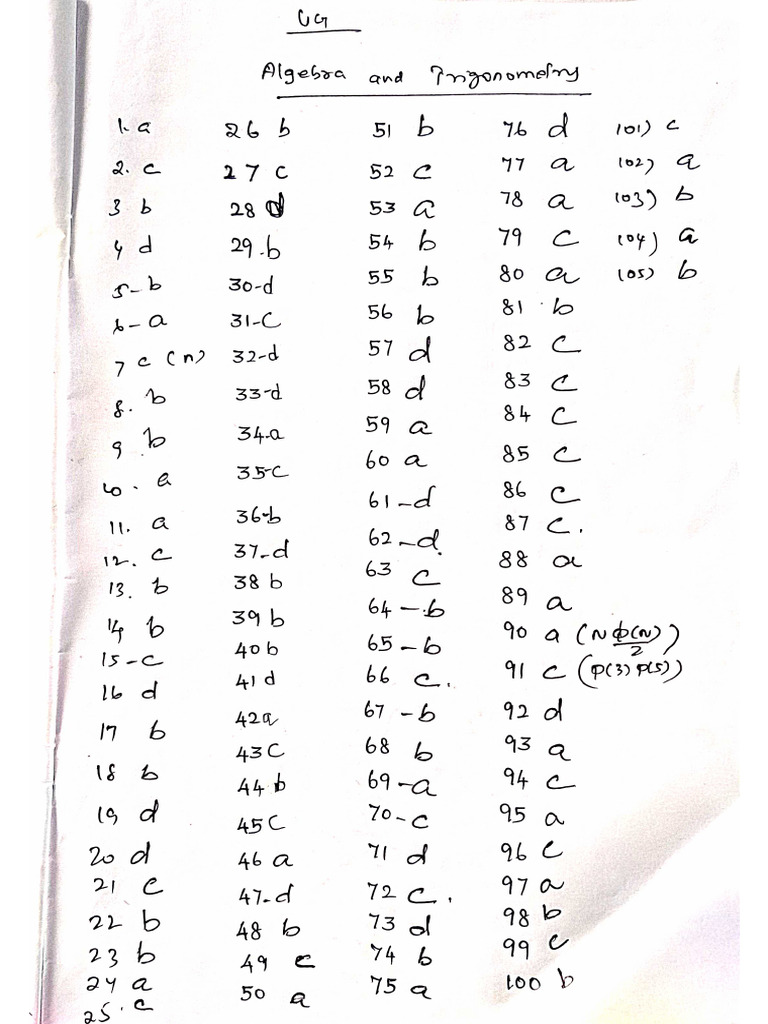 UG
Algebra and Trigonometry
1. a 26 b 51 b 76 d 101) c
2. c 27 c 52 c 77 a 102) a
3 b 28 d 53 a 78 a 103) b
4 d 29.b 54 b 79 c 104) a
5-b 30-d 55 b 80 a 105) b
6-a 31-C 56 b 81 b
7 c (n) 32-d 57 d 82 c
8. b 33-d 58 d 83 c
9 b 34.a 59 a 84 c
10. a 35-C 60 a 85 c
11. a 36-b 61-d 86 c
12. c 37-d 62-d. 87 c.
13. b 38 b 63 c 88 a
14 b 39 b 64-b 89 a
15-c 40 b 65-b 90 a (N φ(N)/2)
16 d 41 d 66 c. 91 c (φ(3) φ(5))
17 b 42a 67-b 92 d
18 b 43C 68 b 93 a
19 d 44 b 69-a 94 c
20 d 45C 70-c 95 a
21 c 46 a 71 d 96 c
22 b 47-d 72 c. 97 a
23 b 48 b 73 d 98 b
24 a 49 c 74 b 99 c
25. c 50 a 75 a 100 b